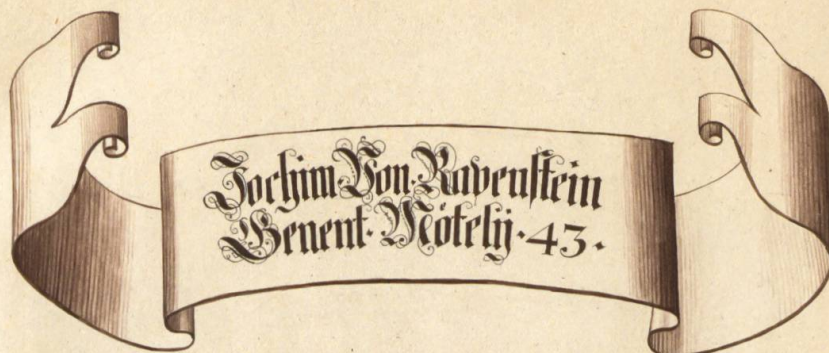 Jochim Von Rapenstein
Genent· Mötelÿ·43·